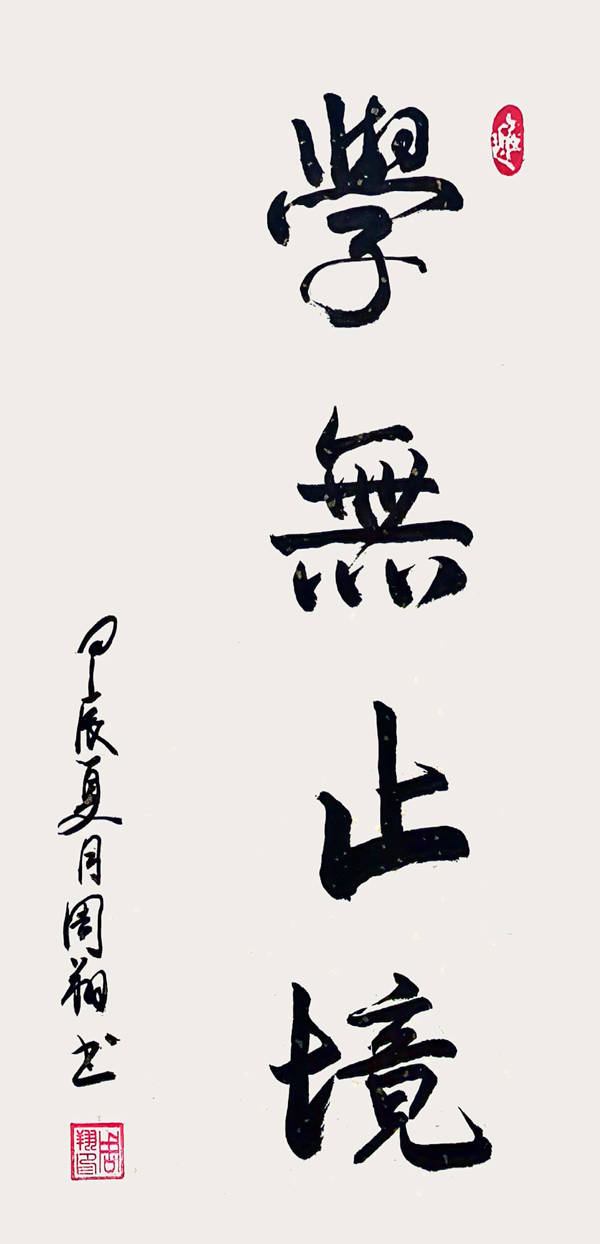 學無止境
甲辰夏月周翔书
周翔印